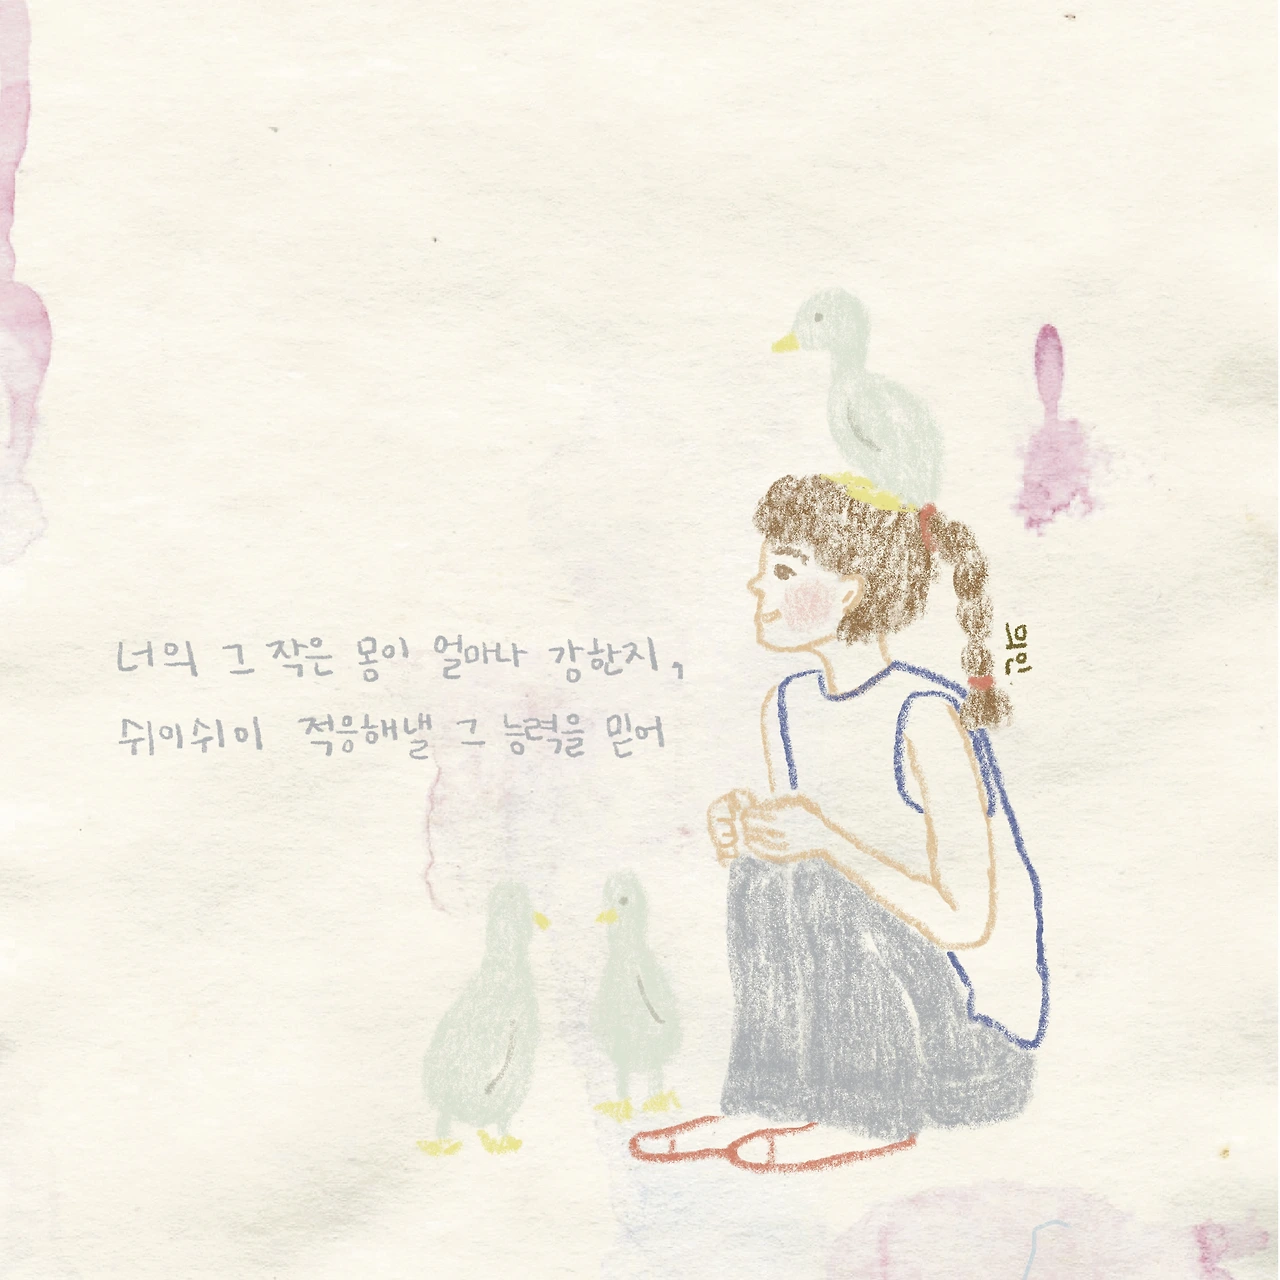 너의 그 작은 몸이 얼마나 강한지,
쉬이쉬이 적응해낼 그 능력을 믿어